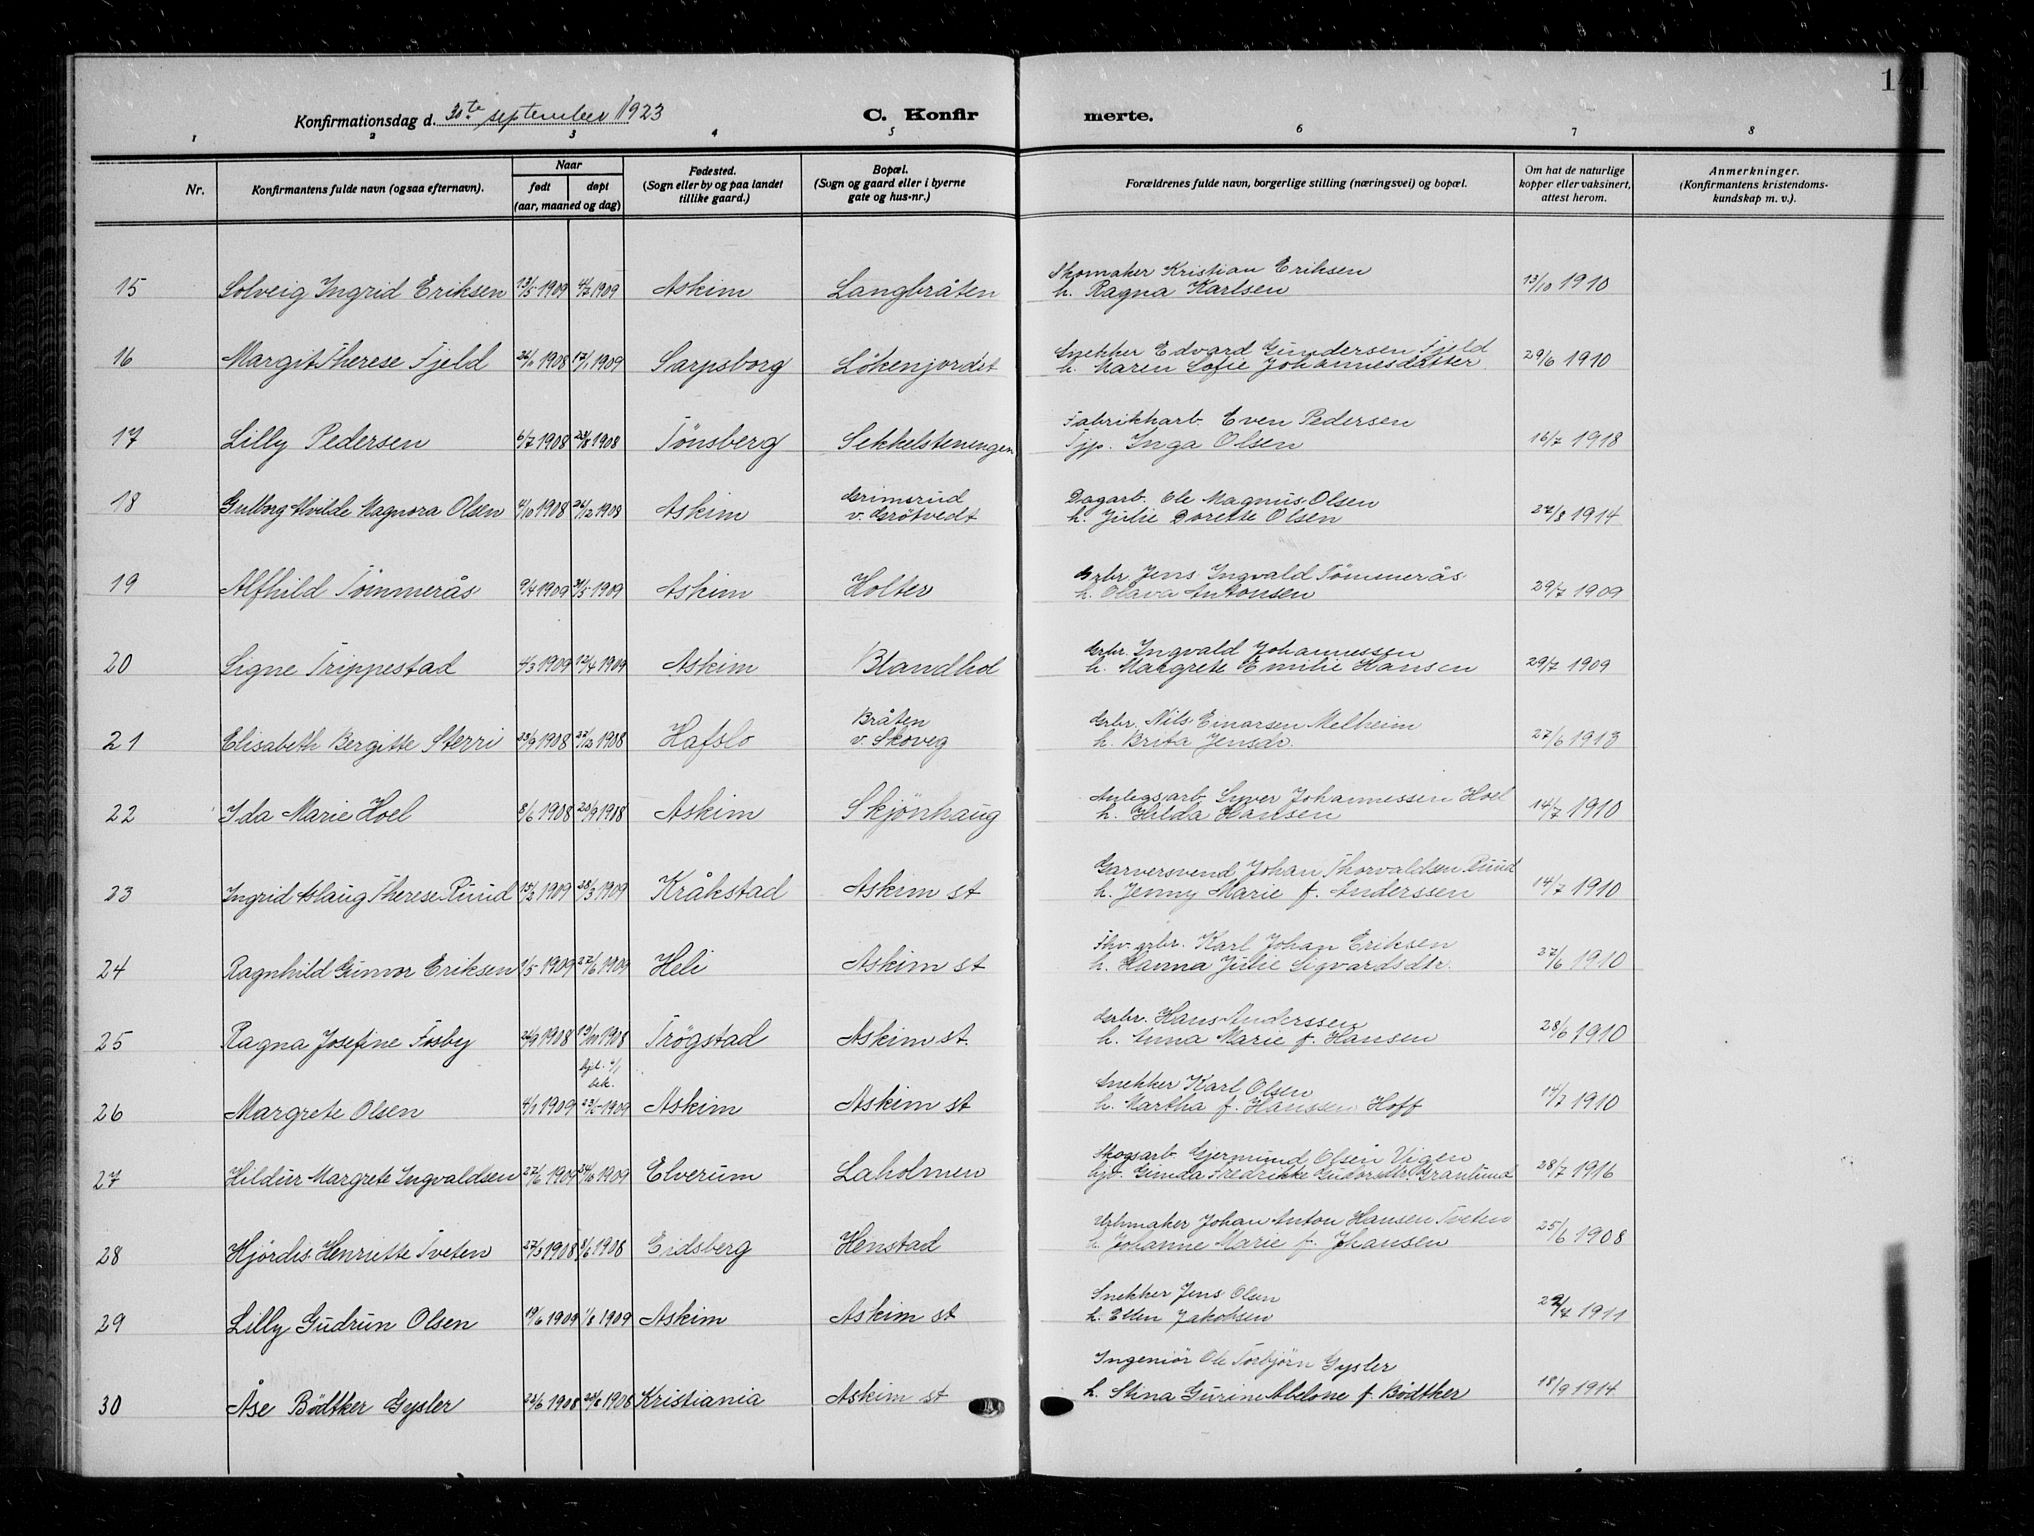 Konfirmationsdag d. 30te september 1923
C. Konfirmerte.
1 2 3 4 5 6 7 8
Nr.
Konfirmantens fulde navn (ogsaa efternavn).
Naar
født døpt
(aar, maaned og dag)
Fødested.
(Sogn eller by og paa landet
tillike gaard.)
Bopæl.
(Sogn og gaard eller i byerne
gate og hus-nr.)
Forældrenes fulde navn, borgerlige stilling (næringsvei) og bopæl.
Om hat de naturlige
kopper eller vaksinert,
attest herom.
Anmerkninger.
(Konfirmantens kristendoms-
kundskap m. v.).
Skomaker Kristian Eriksen
15 Solveig Ingrid Eriksen 13/5 1909 4/7 1909 Askim Langbråten h. Ragna Karlsen 13/10 1910
Snekker Edvard Gundersen Fjeld
16 Margit Therese Fjeld 1908 17/1 1909 Sarpsborg Lökenjordet h. Maren Sofie Johannesdatter 29/6 1910
Fabrikkarb. Even Pedersen
17 Lilly Pedersen 6/7 1908 23/8 1908 Tönsberg Sekkelsteningen Tjp. Inga Olsen 16/7 1918
Grimsrud Dagarb. Ole Magnus Olsen
18 Gulborg Alvilde Magnora Olsen 4/10 1908 26/12 1908 Askim v. Grötvedt h. Julie Dorette Olsen 27/8 1914
Grbr Jens Ingvald Tömmerås
19 Alfhild Tömmerås 9/4 1909 31/5 1909 Askim Holter h. Olava Antonsen 29/7 1909
Grbr. Ingvald Johannessen
20 Signe Trippestad 4/3 1909 12/4 1909 Askim Blandhol h. Margrete Emilie Hansen 29/7 1909
Bråten Grbr. Nils Einarsen Melheim
21 Elisabeth Bergitte Sterri 23/9 1908 27/12 1908 Hafslo v. Skoveg h. Brita Jensdr. 27/6 1913
Anlegsarb. Syver Johannessen Hoel
22 Ida Marie Hoel 8/6 1908 20/9 1908 Askim Skjönhaug h. Hilda Hansen 14/7 1910
Garversvend Johan Thorvaldsen Ruud
23 Ingrid Aslaug Therese Ruud 13/2 1909 28/3 1909 Kråkstad Askim st h. Jenny Marie f. Anderssen 14/7 1910
Fhv. grbr. Karl Johan Eriksen
24 Ragnhild Gunvor Eriksen 1/5 1909 27/6 1909 Heli Askim st h. Hanna Julie Sigvardsdtr. 27/6 1910
Grbr. Hans Anderssen
25 Ragna Josefine Fosby 24/9 1908 1908 Trögstad Askim st. h. Anna Marie f. Hansen 28/6 1910
bek. Snekker Karl Olsen
26 Margrete Olsen 4/1 1909 1909 Askim Askim st h. Martha f. Hanssen Hoff 14/7 1910
Skogsarb. Gjermund Olsen Vigen
27 Hildur Margrete Ingvaldsen 1909 24/10 1909 Elverum Laholmen Gunda Fredrikke Gudbrdtr. Granlund 28/7 1916
Urhmaker Johan Anton Hansen Tveten
28 Hjördis Henriette Tveten 27/3 1908 8/6 1908 Eidsberg Henstad h. Johanne Marie f. Johansen 25/6 1908
Snekker Jens Olsen
29 Lilly Gudrun Olsen 19/6 1909 1/8 1909 Askim Askim st h. Ellen Jakobsen 1911
Ingeniör Ole Torbjörn Gysler
30 Åse Bödtker Gysler 1908 1908 Kristiania Askim st h. Stina Gurine Abelone f. Bödtker 18/9 1914